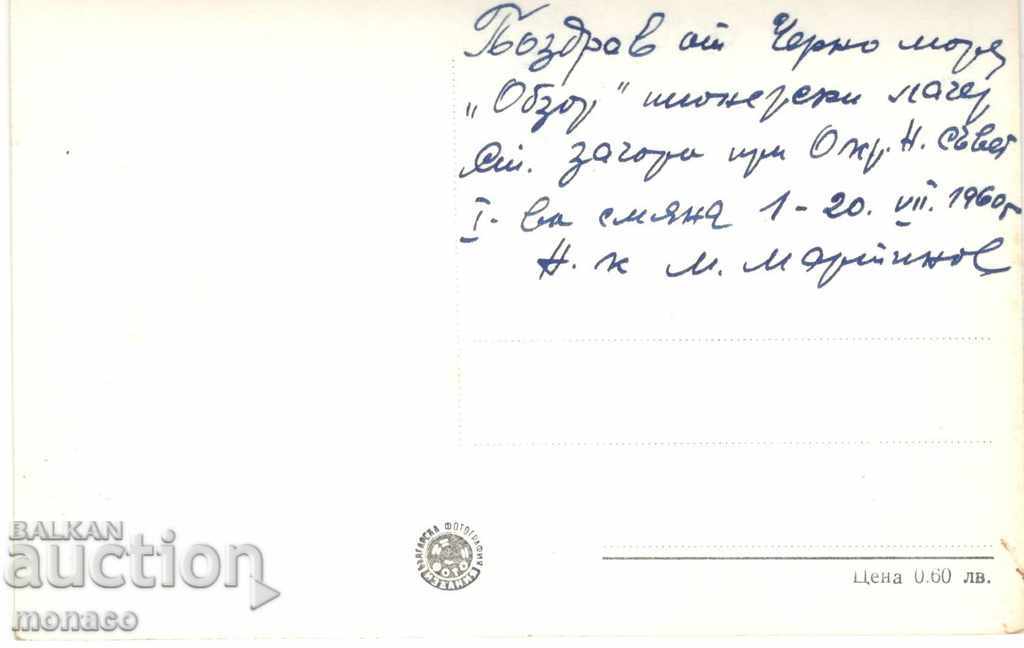 Поздрав от Черно море
„Обзор" пионерски лагер
Ст. Загора при Окр. Н. съвет
I-ва смяна 1-20. VII. 1960г
Н. к М. Мартинов
БЪЛГАРСКА ФОТОГРАФИЯ
ФОТО
ИЗДАНИЕ
Цена 0.60 лв.
BALKAN
auction
monaco